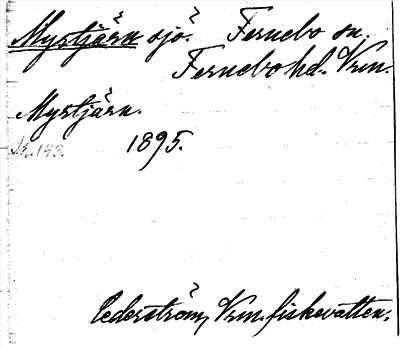 Myrtjärn sjö. Fernebo sn.
Fernebo hd. Vrm.
Myrtjärn.
1895.
Nr. 143.
Cederström, Vrm. fiskevatten.